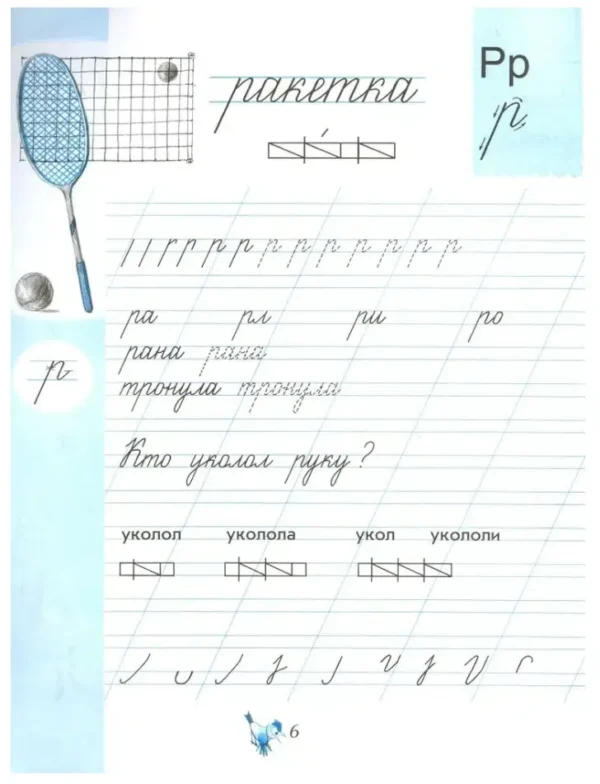 Рр
р
ракетка
р р р р р р р р р
р
ра рл ри ро
рана рана
тронула тронула
Кто уколол руку?
уколол уколола укол укололи
6